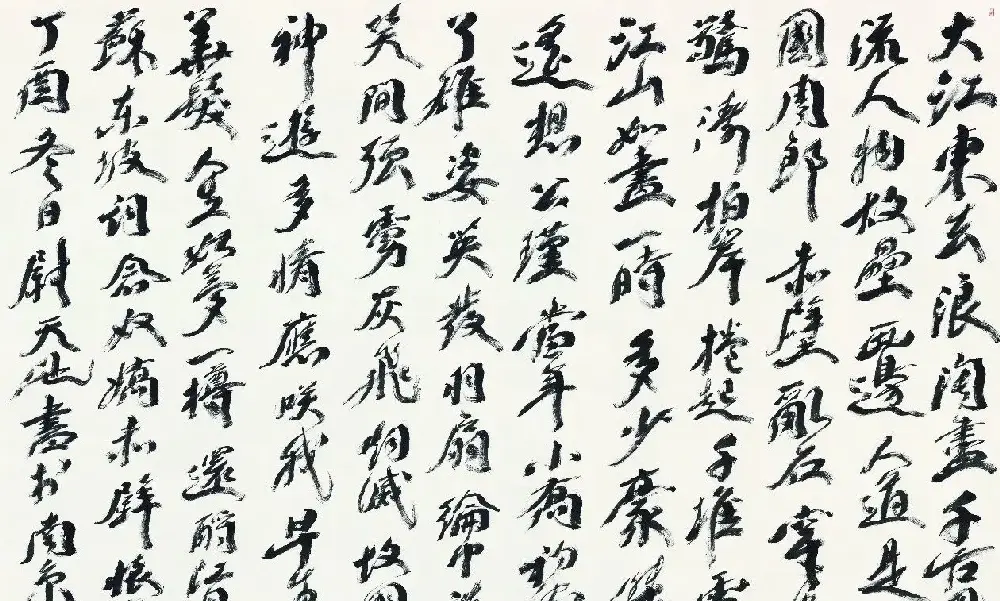 大江東去浪淘盡千古
流人物故壘西邊人道是
國周郎赤壁亂石穿
驚濤拍岸捲起千堆
江山如畫一時多少豪
遙想公瑾當年小喬初
了雄姿英發羽扇綸巾
笑間強虜灰飛烟滅故
神遊多情應笑我早生
華髮人生如夢一樽還酹江
蘇东坡詞念奴嬌赤壁懷
丁酉冬日尉天池書於南京